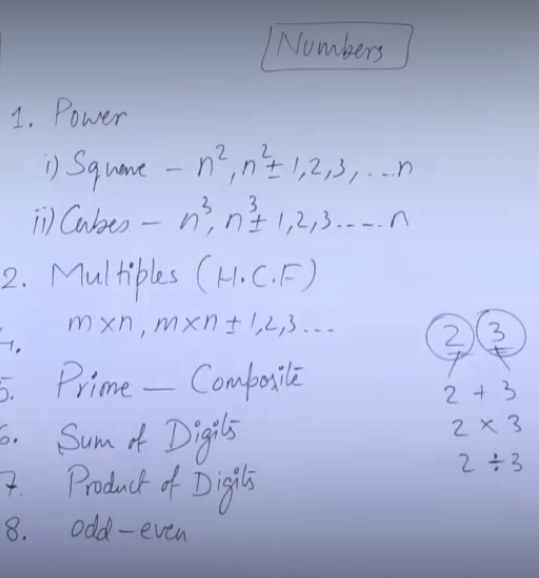 Numbers
1. Power
i) Square - n², n² ± 1,2,3, ...n
ii) Cubes - n³, n³ ± 1,2,3.....n
2. Multiples (H.C.F)
m×n, m×n ± 1,2,3...
4.
2 3
5. Prime - Composite
2 + 3
6. Sum of Digits
2 × 3
7. Product of Digits
2 ÷ 3
8. odd-even